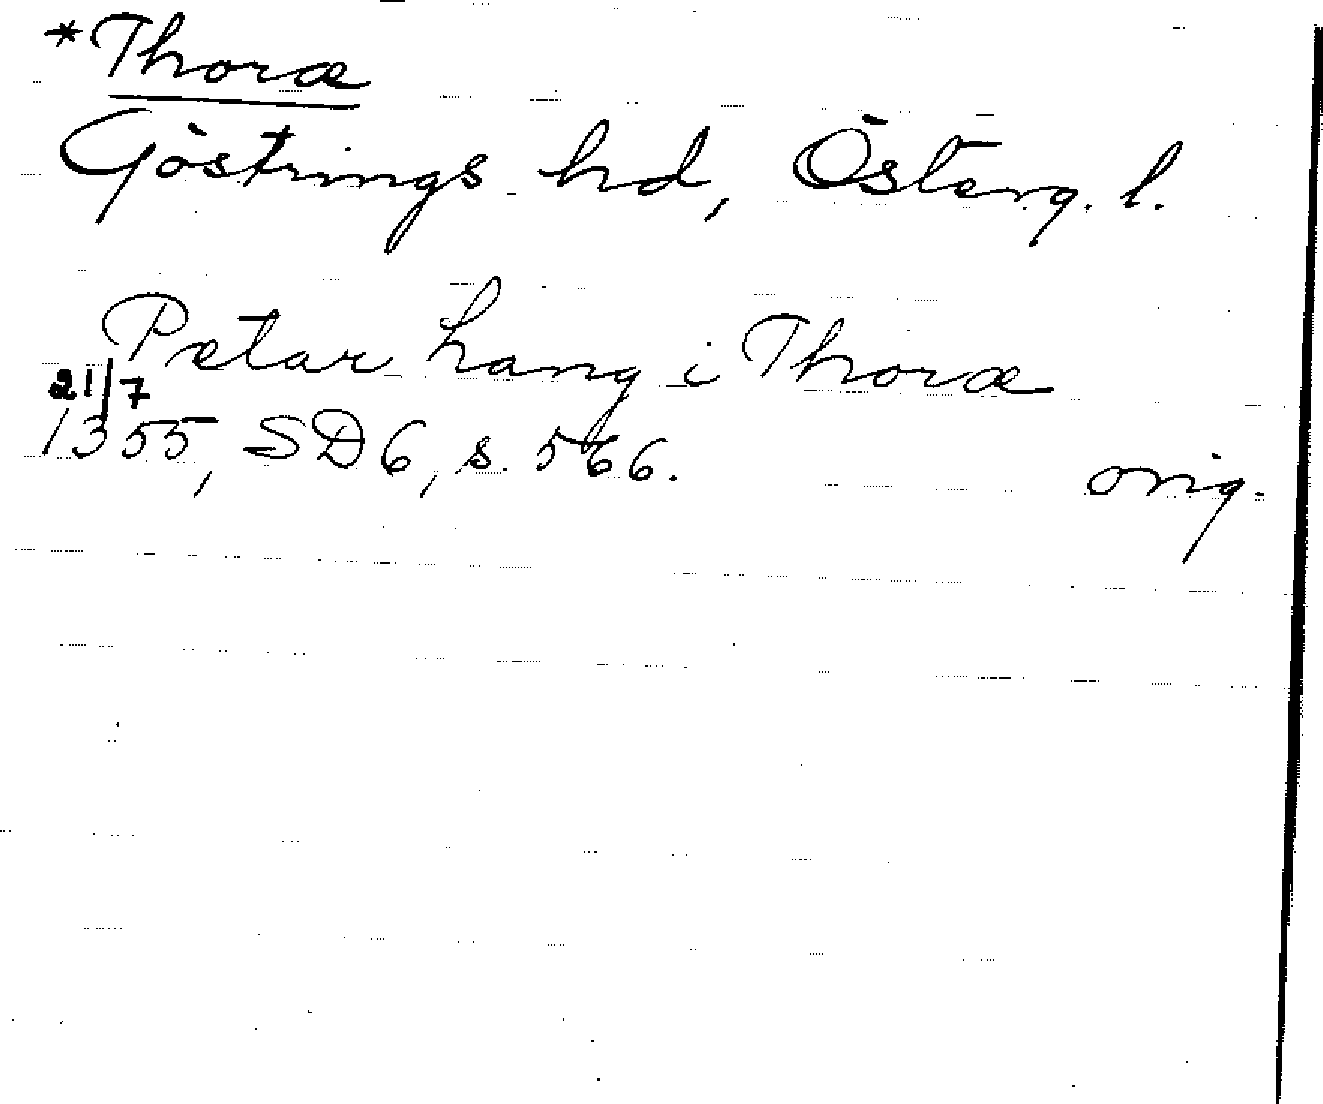 *Thoræ
Göstrings hd, Österg. l.
Pætar hang i Thoræ
21/7
1355, SD 6, s. 566.
orig.